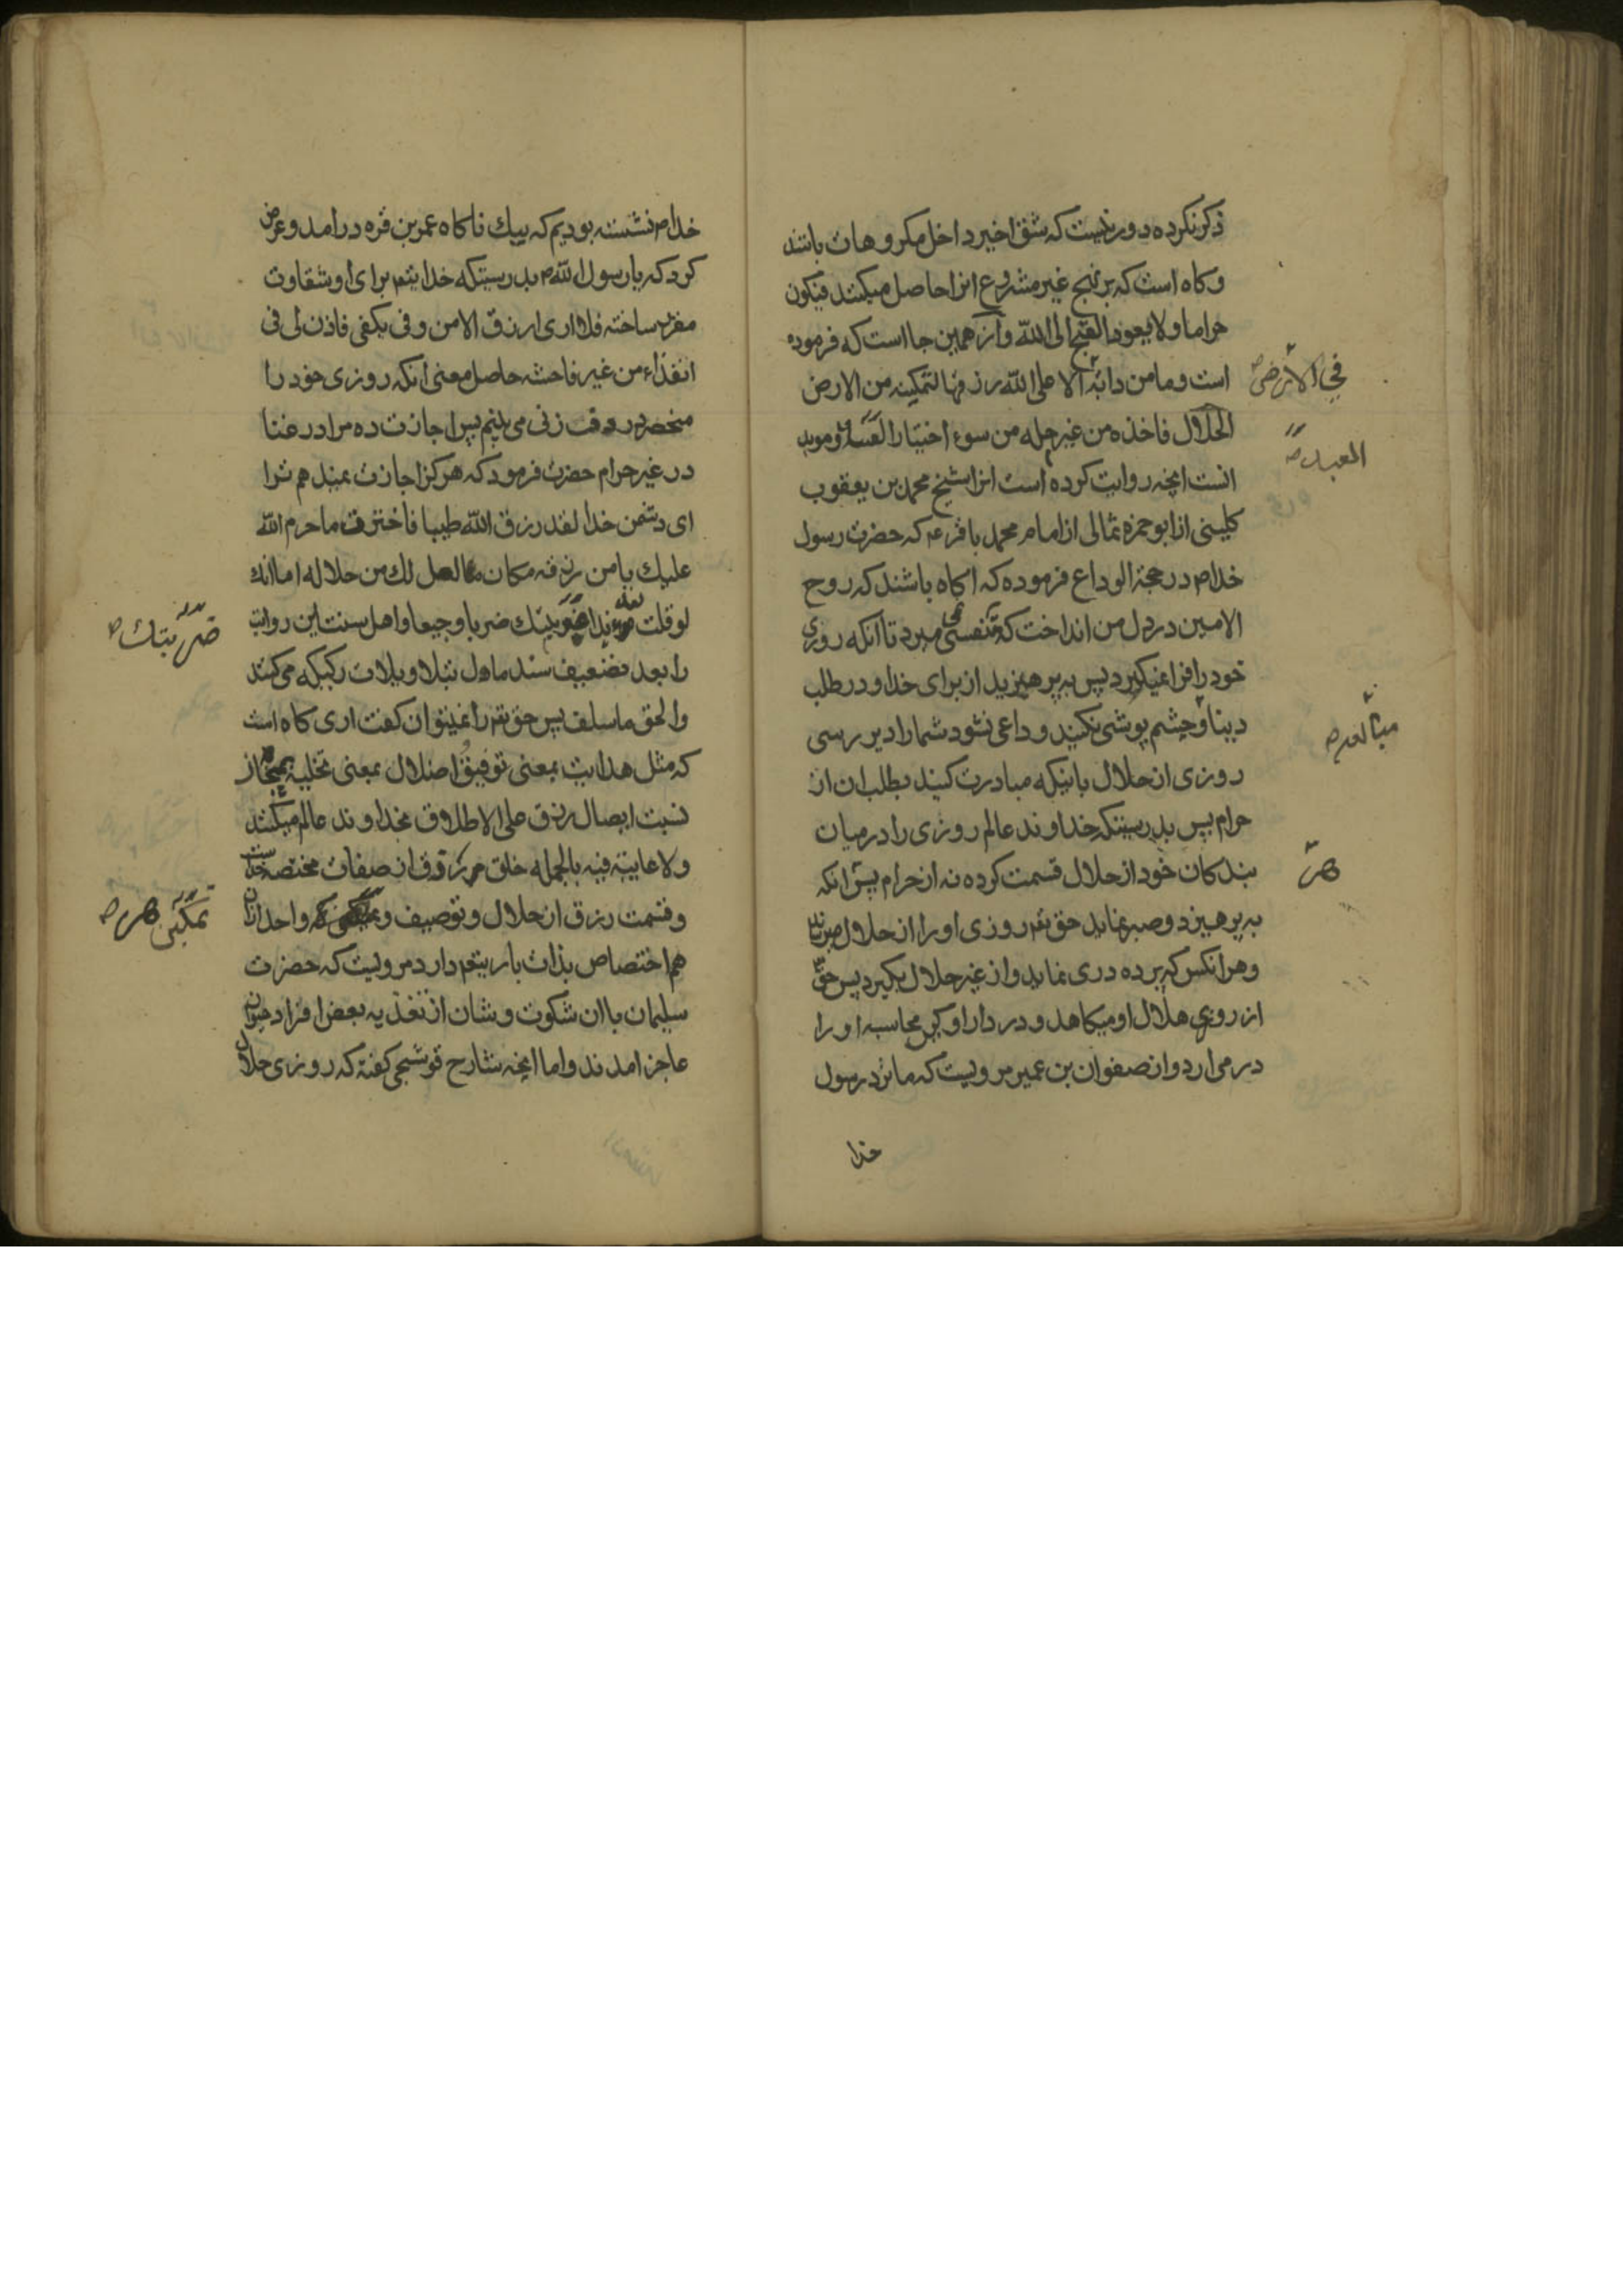 ذکر نکرده دور نیست که شق اخیر داخل مکروهات باشند
و کاه است که بر نهج غیر مشروع انرا حاصل میکنند فیکون
حراما و لا یعود القبح الی الله و از همین جا است که فرموده
است و ما من دابة الا علی الله رزقها لتمکینه من الارض
في الارض
الحلال فاخذه من غیر حله من سوء اختیار العبد و موید
العبد
انست انچه روایت کرده است انرا شیخ محمد بن یعقوب
کلینی از ابو حمزه ثمالی از امام محمد باقر ع که حضرت رسول
خدا ص در حجة الوداع فرموده که اکاه باشند که روح
الامین در دل من انداخت که نفسی نمی میرد تا انکه روزی
خود را فرا نمیکیرد پس به پرهیزید از برای خدا و در طلب
دنیا و چشم پوشی نکنید و داعی نشود شما را دیر رسی
مبالغه
روزی از حلال باینکه مبادرت کنید بطلب ان از
حرام پس بدرستیکه خداوند عالم روزی را در میان
بندکان خود از حلال قسمت کرده نه از حرام پس انکه
هر
به پرهیزد و صبر نماید حق تعم روزی او را از حلال میرساند
و هر انکس که پرده دری نماید و از غیر حلال بکیرد پس حق
از روزی حلال او میکاهد و در دار او کیر محاسبه او را
در می ارد و از صفوان بن عمیر مرویست که ما نزد رسول
خدا
خدا ص نشسته بودیم که بیک ناکاه عمر بن قره در امد و عرض
کرد که یا رسول الله ص بدرستیکه خدا یتعم برای او شقاوت
مقرر ساخته فلا اری ارزق الا من دفی بکفی فاذن لی فی
الغناء من غیر فاحشه حاصل معنی انکه روزی خود را
منحصر در دف زنی می بینم پس اجازت ده مرا در غنا
در غیر حرام حضرت فرمود که هرکز اجازت نمیدهم ترا
ای دشمن خدا لقد رزق الله طیبا فاخترت ما حرم الله
علیک یا من رزقه مکان ما احل لک من حلاله اما انک
لو قلت بعد هذا ضربتک ضربا وجیعا و اهل سنت این روایت
ضربتک
را بعد تضعیف سند ماول بتاویلات رکیکه می کنند
و الحق ما سلف پس حق تعم را نمیتوان کفت اری کاه است
که مثل هدایت بمعنی توفیق و اضلال بمعنی تخلیه مجاز
نسبت ایصال رزق علی الاطلاق بخداوند عالم میکنند
و لا عایبة فیه بالجمله خلق هر رزق از صفات مختصه خداست
و قسمت رزق از حلال و توصیف و تمکین هر واحد ازان
تمکین هر
هم اختصاص بذات باریتعم دارد مرویست که حضرت
سلیمان با ان شکوت و شان از تغذیه بعض افراد حیوان
عاجز امدند و اما انچه شارح قوشجی کفته که روزی حلال